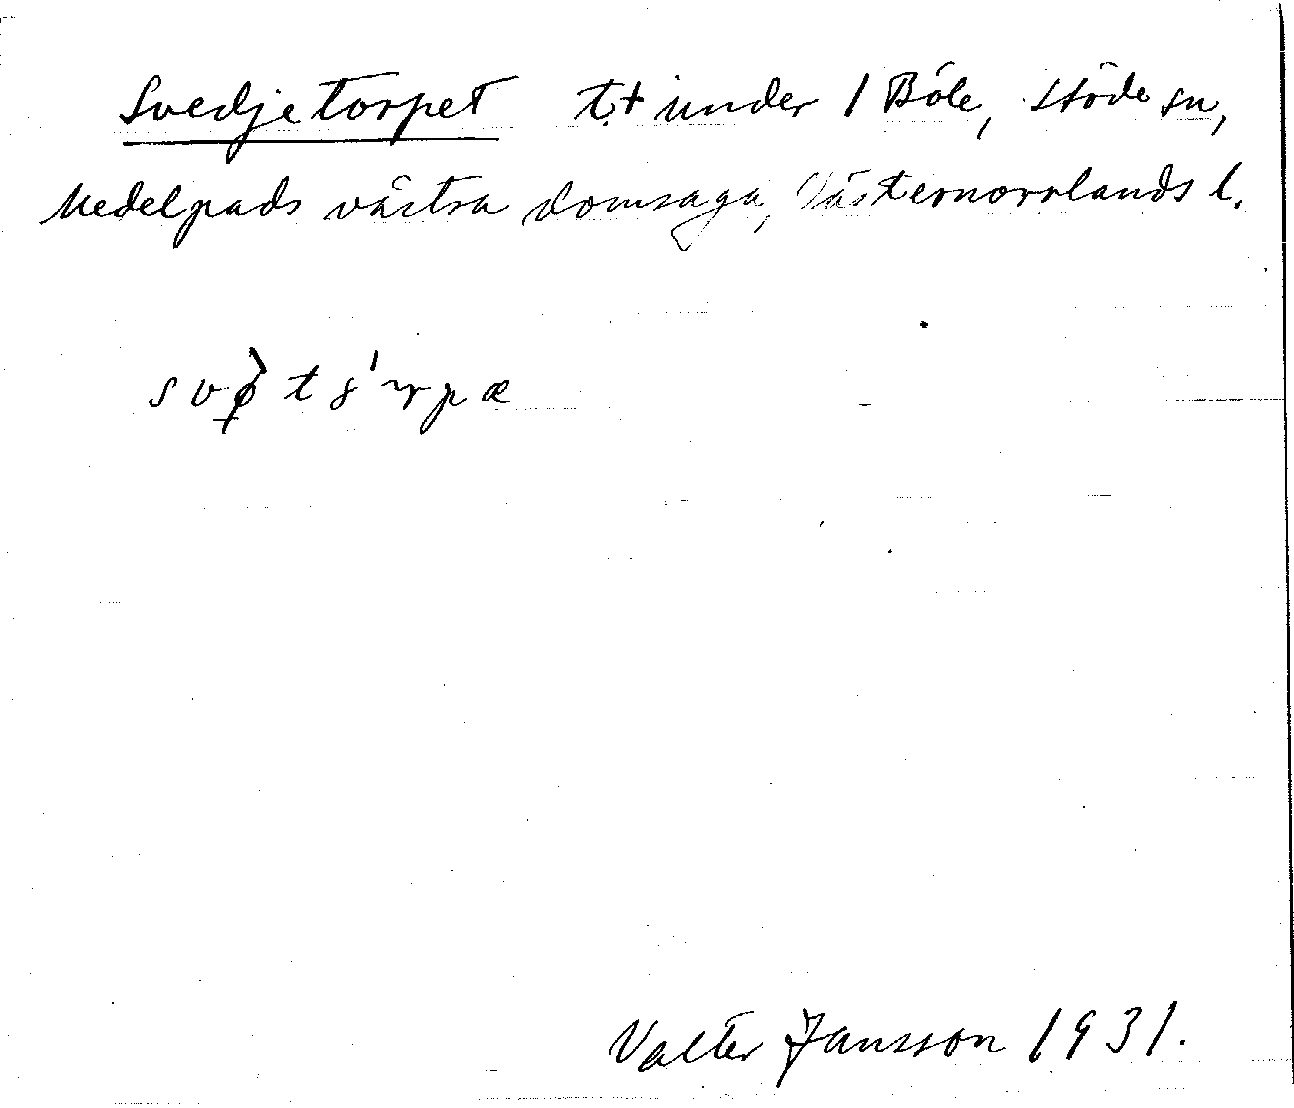 Svedjetorpet t.+ under 1 Böle, Stöde sn,
Medelpads västra domsaga, Västernorrlands l.
Valter Jansson 1931.